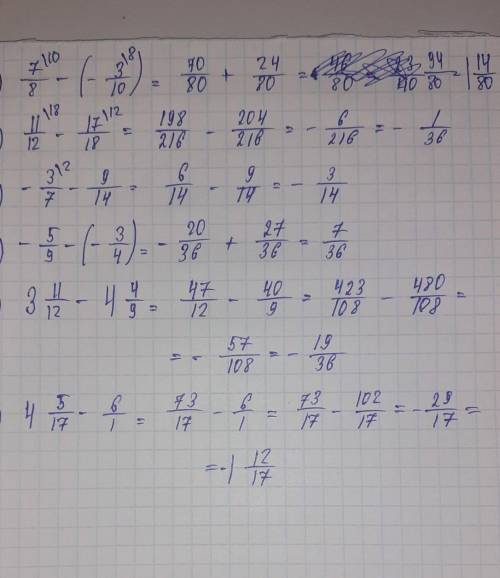 ) 7/8\10 - (- 3/10\8) = 70/80 + 24/80 = 94/80 = 1 14/80
) 11/12\18 - 17/18\12 = 198/216 - 204/216 = - 6/216 = - 1/36
- 3/7\2 - 9/14 = 6/14 - 9/14 = - 3/14
) - 5/9 - (- 3/4) = - 20/36 + 27/36 = 7/36
) 3 11/12 - 4 4/9 = 47/12 - 40/9 = 423/108 - 480/108 =
= - 57/108 = - 19/36
) 4 5/17 - 6/1 = 73/17 - 6/1 = 73/17 - 102/17 = - 29/17 =
= -1 12/17